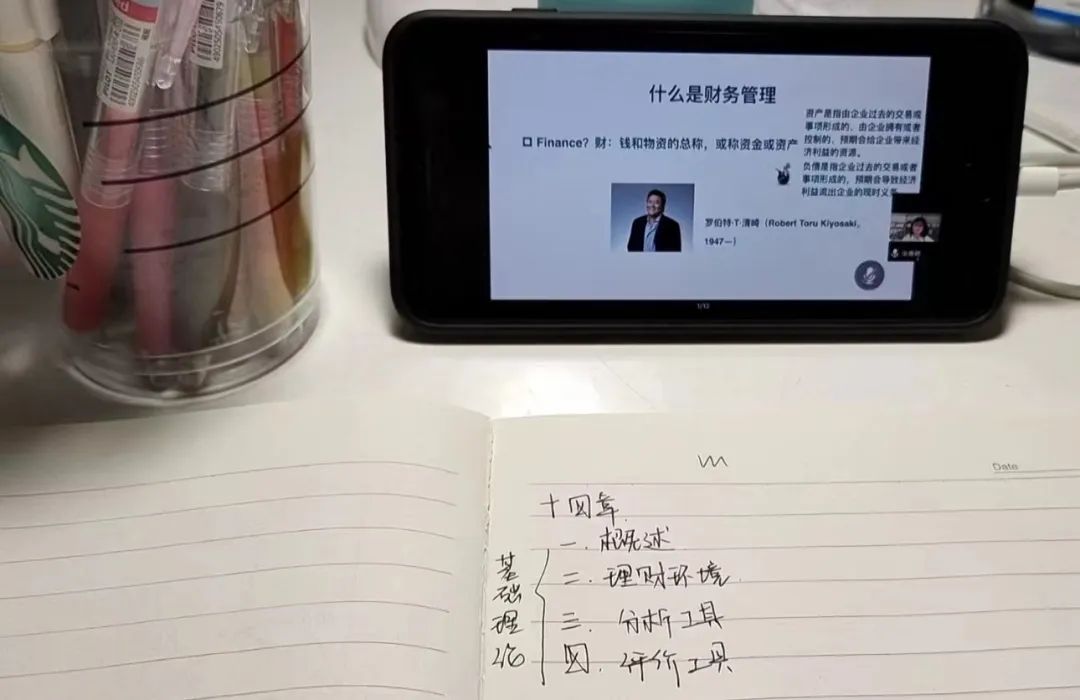 PILOT
什么是财务管理
口 Finance? 财：钱和物资的总称，或称资金或资产
资产是指由企业过去的交易或
事项形成的、由企业拥有或者
控制的、预期会给企业带来经
济利益的资源。
负债是指企业过去的交易或者
事项形成的，预期会导致经济
利益流出企业的现时义务
罗伯特·T·清崎（Robert Toru Kiyosaki，
1947—）
1/12
Date
十四章
一. 概述
二. 理财环境
三. 分析工具
四. 评价工具
基础理论